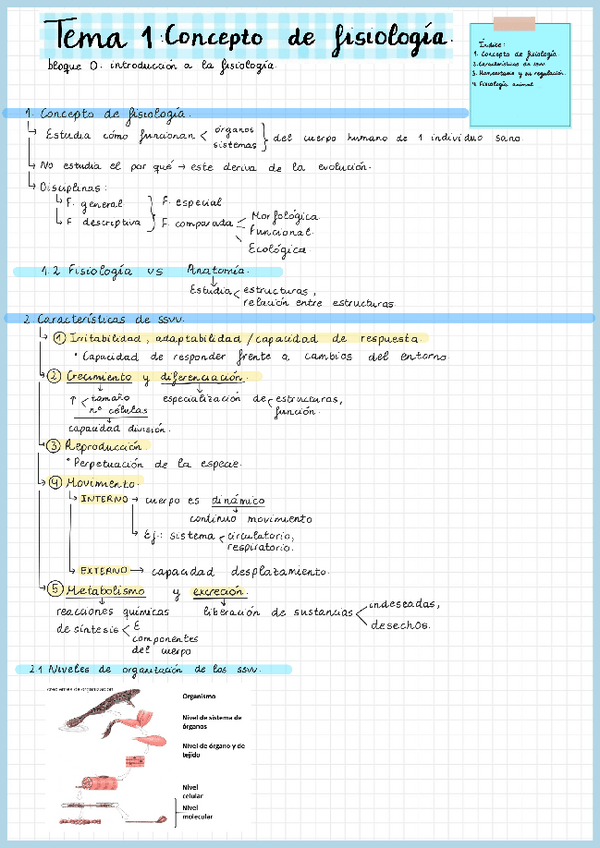 Tema 1: Concepto de fisiología.
bloque 0. introducción a la fisiología.
Índice:
1. Concepto de fisiología
2. Características de ssvv
3. Homeostasis y su regulación.
4. Fisiología animal
1. Concepto de fisiología.
Estudia cómo funcionan < órganos sistemas } del cuerpo humano de 1 individuo sano
No estudia el por qué → este deriva de la evolución.
Disciplinas:
F. general
F. descriptiva
F. especial
F. comparada
Morfológica.
Funcional.
Ecológica.
1.2 Fisiología vs Anatomía.
Estudia < estructuras,
relación entre estructuras
2. Características de ssvv.
① Irritabilidad, adaptabilidad / capacidad de respuesta.
* Capacidad de responder frente a cambios del entorno.
② Crecimiento y diferenciación.
↑ < tamaño
nº células
capacidad división.
especialización de < estructuras,
función.
③ Reproducción
* Perpetuación de la especie.
④ Movimiento.
INTERNO → cuerpo es dinámico
continuo movimiento
Ej.: sistema < circulatorio,
respiratorio.
EXTERNO → capacidad desplazamiento.
⑤ Metabolismo y excreción.
reacciones químicas
de síntesis < E
componentes
del cuerpo
liberación de sustancias < indeseadas,
desechos.
2.1 Niveles de organización de los ssvv.
Organismo
Nivel de sistema de
órganos
Nivel de órgano y de
tejido
Nivel
celular
Nivel
molecular